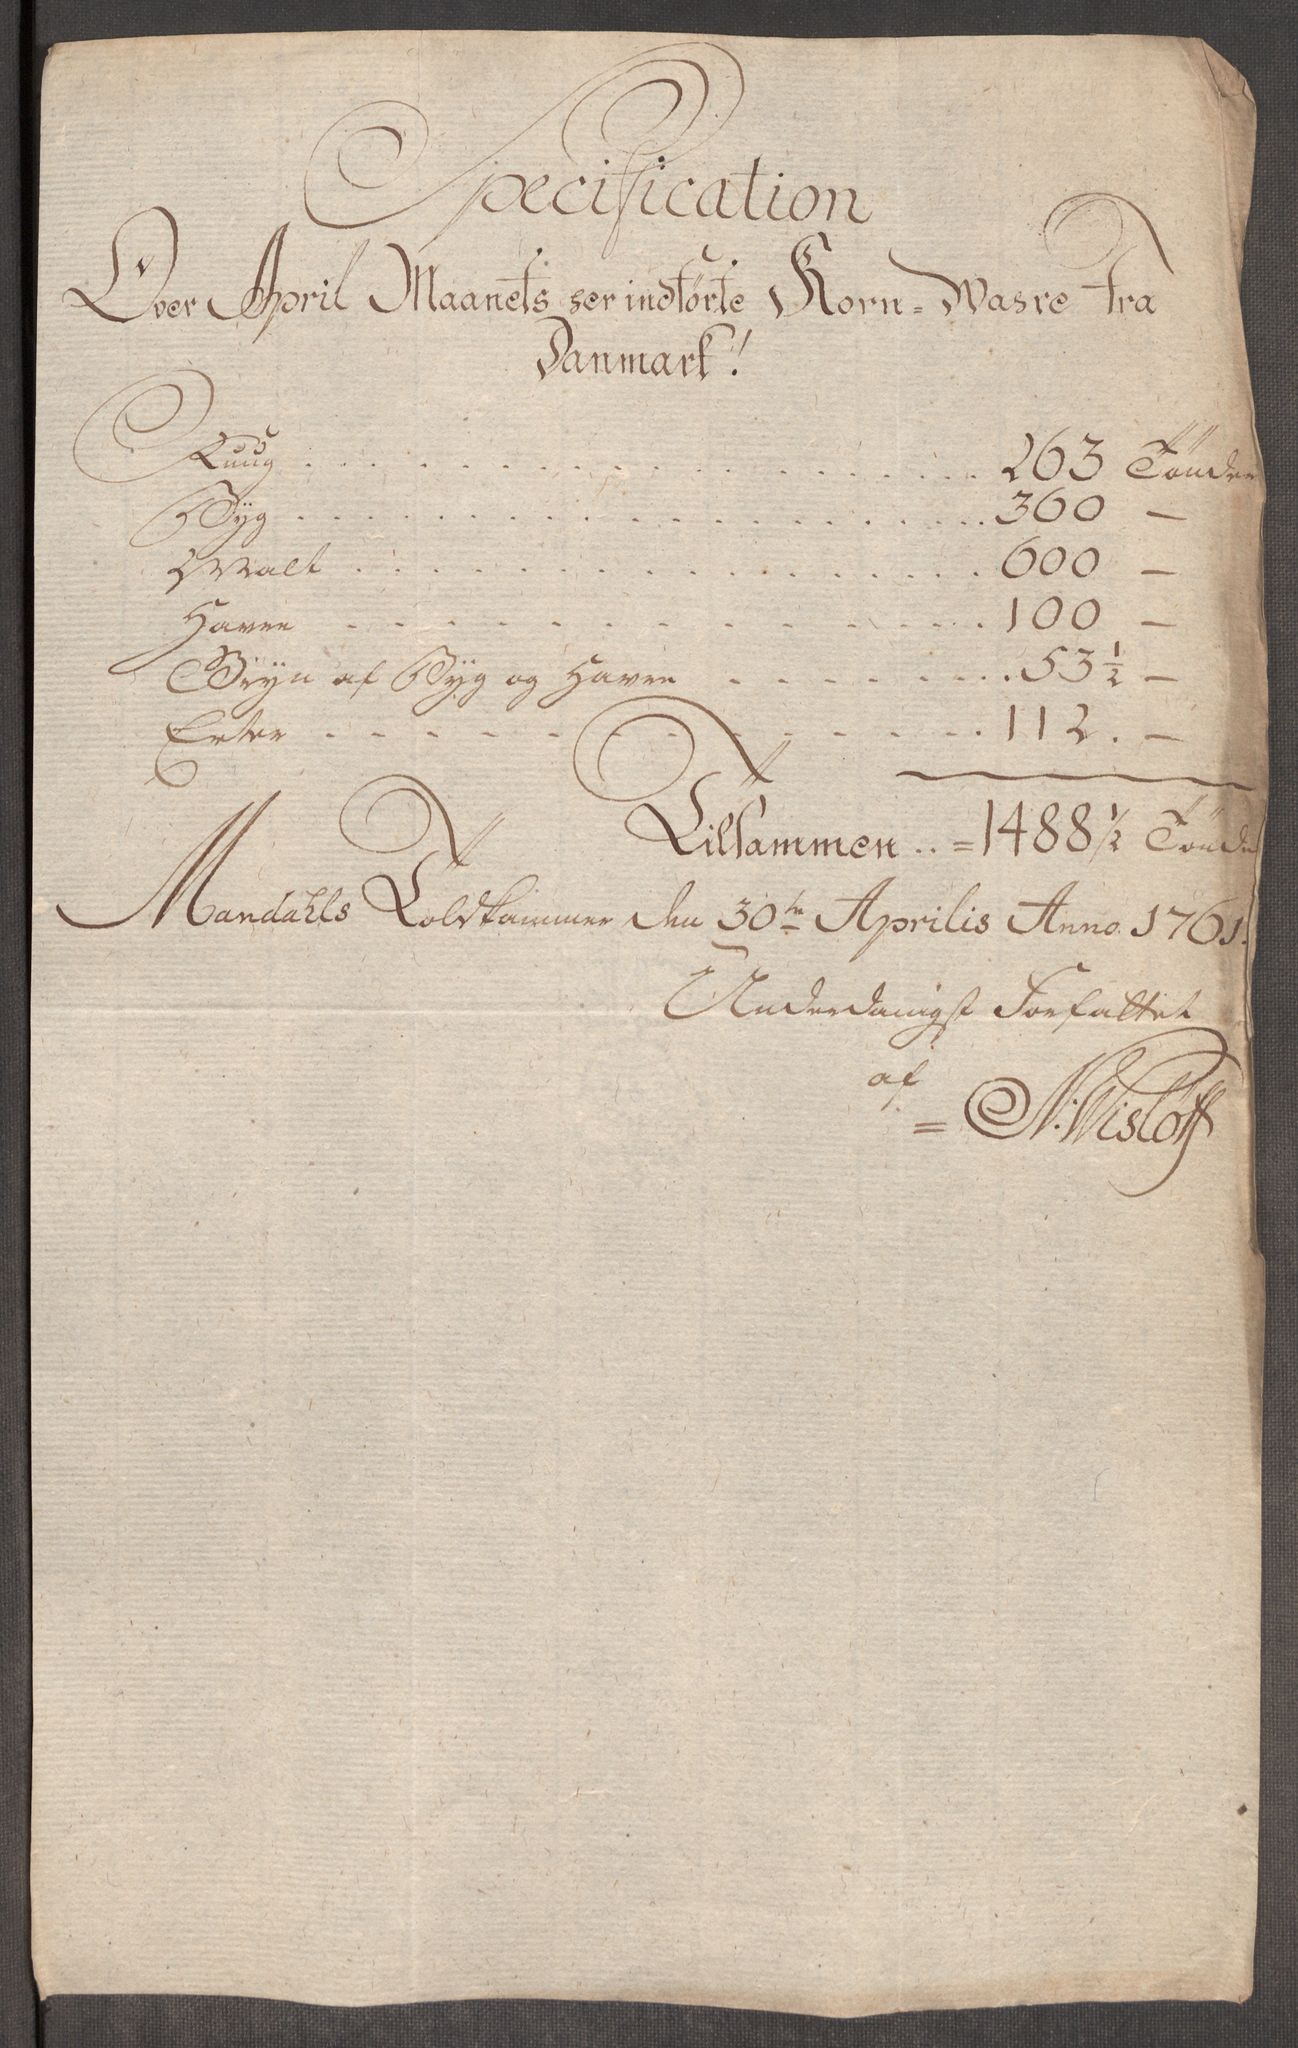 Specification
Over April Maanets her indförte Korn=Wahre fra
Danmark!
Ruug . . . . . . . . . . . . . . . . . . 263 Tönder
Byg . . . . . . . . . . . . . . . . . . 360 —
Malt . . . . . . . . . . . . . . . . . 600 —
Havre . . . . . . . . . . . . . . . . . 100 —
Gryn af Byg og Havre . . . . . . . . 53 ½ —
Erter . . . . . . . . . . . . . . . . . 112. —
Tilsammen .. = 1488 ½ Tönder
Mandahls Toldkammer den 30te Aprilis Anno 1761.
Underdanigst Forfattet
af
= N: Wislöff